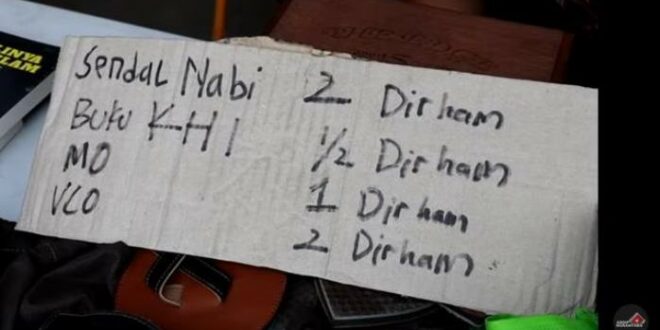 LINYA
LAM
Sendal Nabi 2 Dirham
Buku KHI 1/2 Dirham
MO 1 Dirham
VCO 2 Dirham